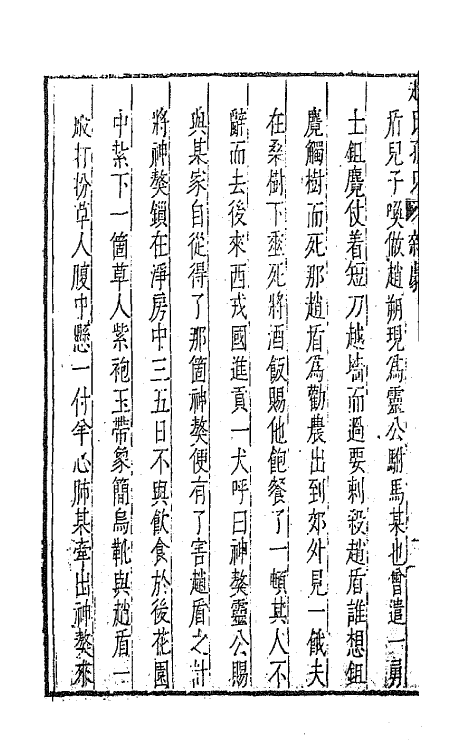 趙氏孤兒 雜劇
盾兒子喚做趙朔現為靈公駙馬某也曾遣一勇
士鉏麑仗着短刀越墻而過要刺殺趙盾誰想鉏
麑觸樹而死那趙盾為勸農出到郊外見一餓夫
在桑樹下垂死將酒飯賜他飽餐了一頓其人不
辭而去後來西戎國進貢一犬呼曰神獒靈公賜
與某家自從得了那箇神獒便有了害趙盾之計
將神獒鎖在淨房中三五日不與飲食於後花園
中紮下一箇草人紫袍玉帶象簡烏靴與趙盾一
般打扮草人腹中懸一付羊心肺某牽出神獒來